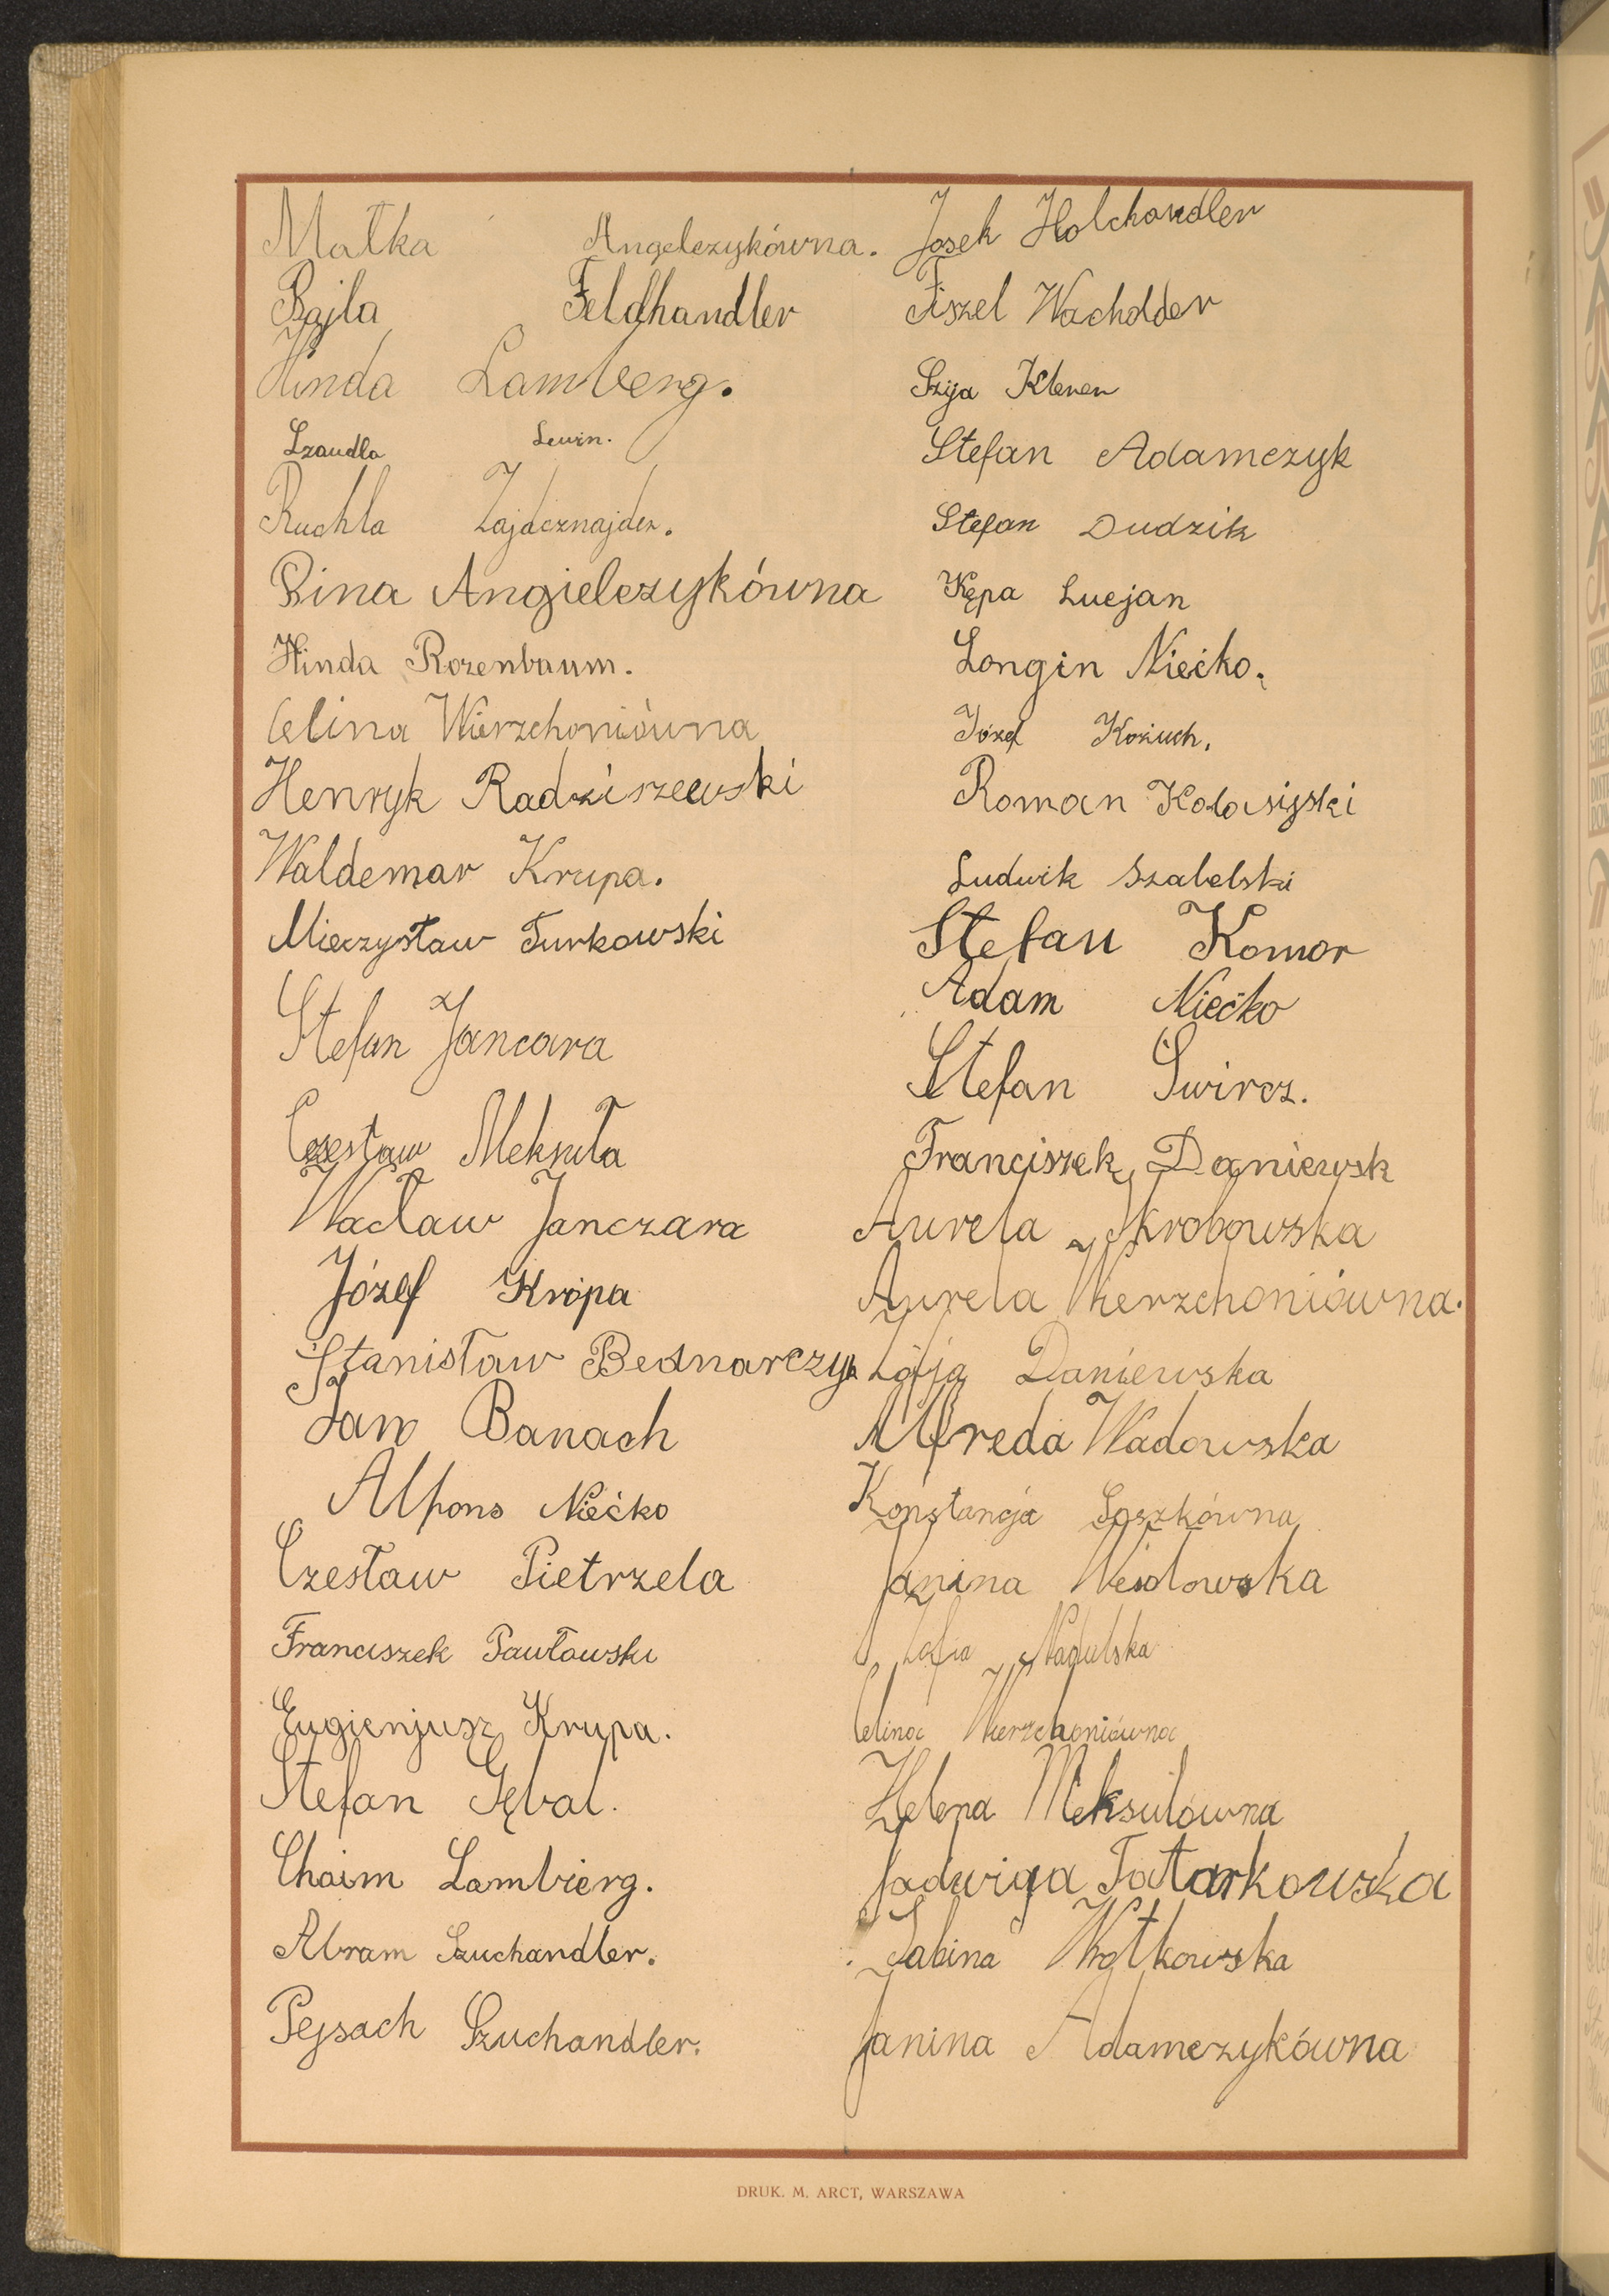 Małka Angelczykówna.
Bajla Feldhandler
Hinda Lamberg.
Szandla Lewin.
Ruchla Zajdcznajder.
Bina Angielczykówna
Hinda Rozenbaum.
Celina Wierzchoniówna
Henryk Radziszewski
Waldemar Krupa.
Mieczysław Turkowski
Stefan Jancara
Czesław Mekuła
Wacław Janczara
Józef Krópa
Stanisław Bednarczyk
Jan Banach
Alfons Niećko
Czesław Pietrzela
Franciszek Pawłowski
Eugienjusz Krupa.
Stefan Gębal.
Chaim Lambierg.
Abram Szuchandler.
Pejsach Szuchandler.
Josek Holchandler
Fiszel Wacholder
Szyja Klerer
Stefan Adamczyk
Stefan Dudzik
Kępa Lucjan
Longin Niećko.
Józef Kożuch.
Roman Kołasiński
Ludwik Szabelski
Stefan Komor
Adam Niećko
Stefan Śwircz.
Franciszek Daniewsk
Aurela Skrobowska
Aurela Wierzchoniówna.
Zofja Daniewska
Alfreda Wadowska
Konstancja Soszkówna
Janina Wesołowska
Zofia Nagulska
Celina Wierzchoniówna
Helena Meksułówna
Jadwiga Tatarkowska
Sabina Wołkowska
Janina Adamczykówna
DRUK. M. ARCT, WARSZAWA